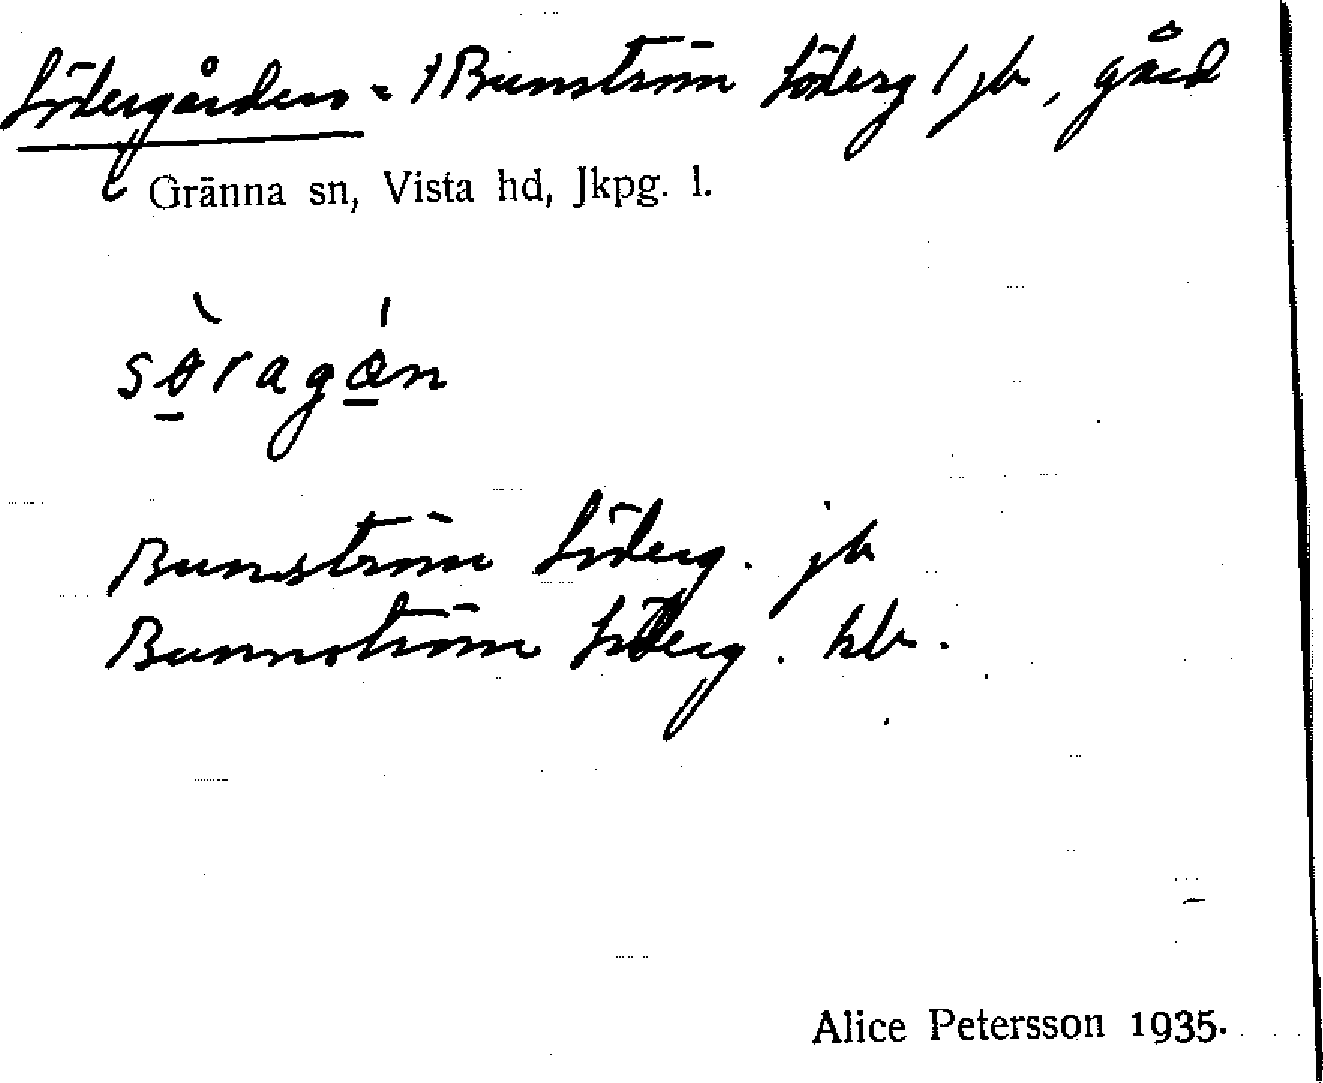 Södergården = /Bunström Söderg/ jb, gård
Gränna sn, Vista hd, Jkpg. l.
sø̱̀ragá̱n
Bunström Söderg. jb
Bunnström Söderg. hb.
Alice Petersson 1935.